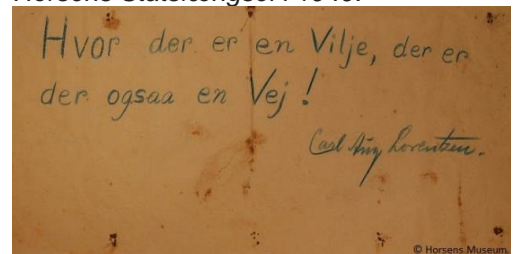 Hvor der er en Vilje, der er
der ogsaa en Vej!
Carl Aug Lorentzen.
© Horsens Museum.